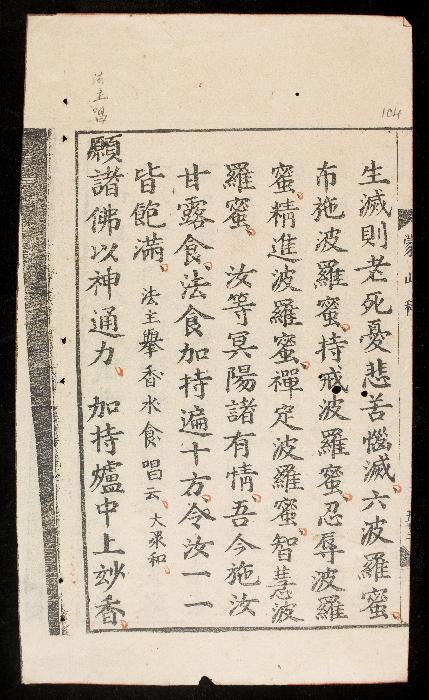 104
法主唱
蒙山科
生滅則老死憂悲苦惱滅六波羅蜜
布施波羅蜜持戒波羅蜜忍辱波羅
蜜精進波羅蜜禪定波羅蜜智慧波
羅蜜 汝等冥陽諸有情吾今施汝
甘露食法食加持遍十方令汝一一
皆飽滿 法主舉香水食唱云 大衆和
願諸佛以神通力 加持爐中上妙香